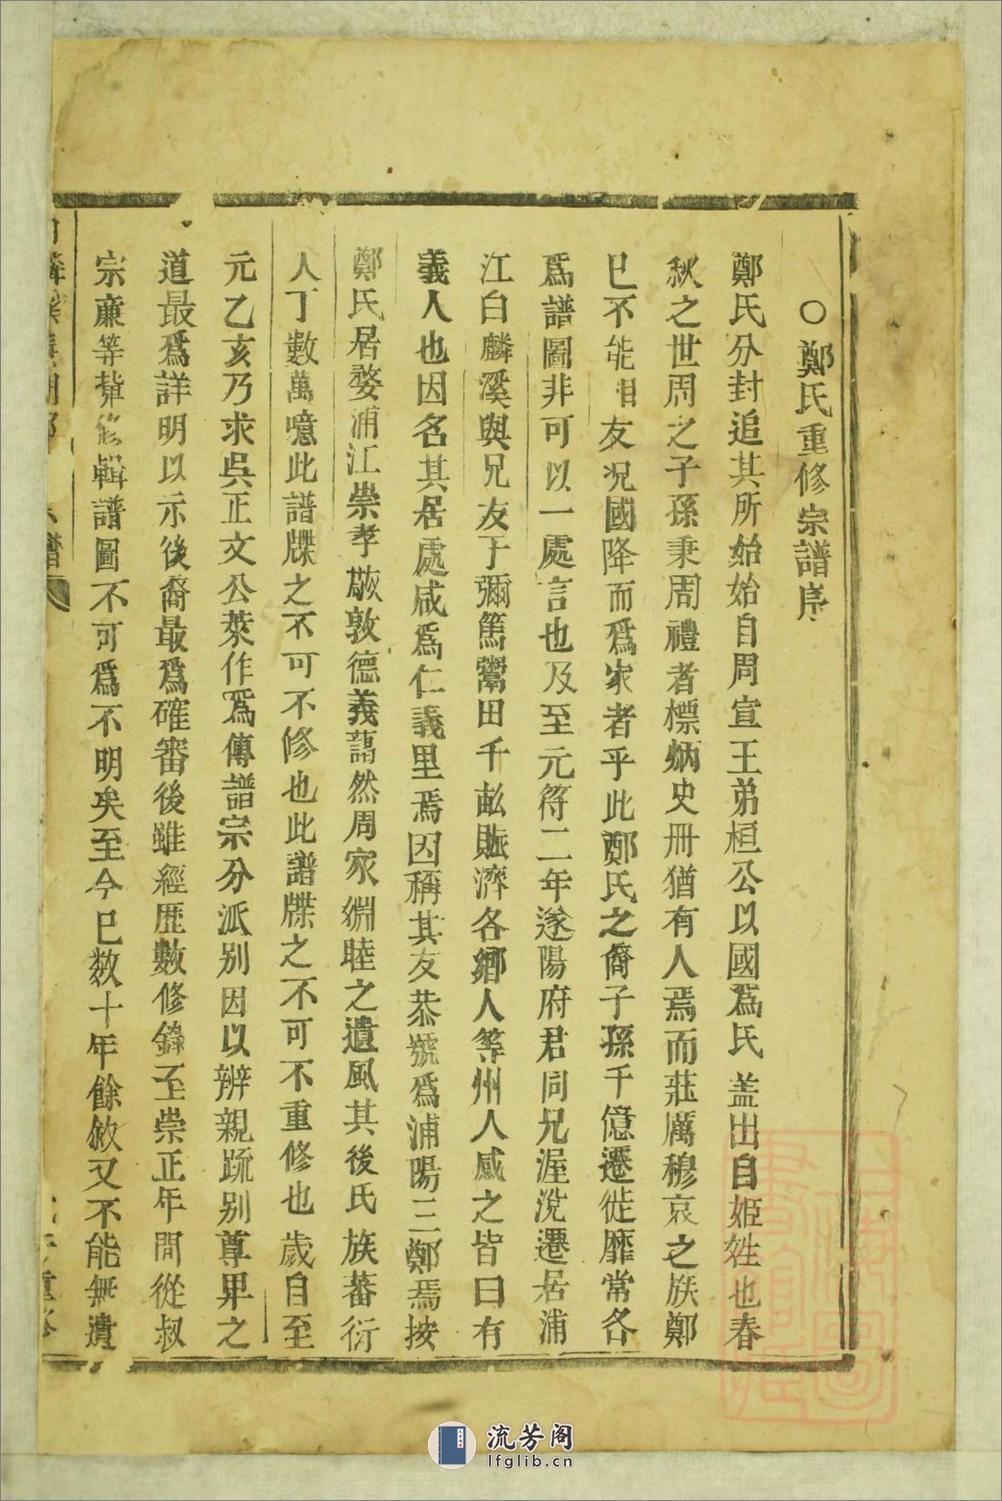 ○鄭氏重修宗譜序
鄭氏分封追其所始始自周宣王弟桓公以國為氏蓋出自姬姓也春
秋之世周之子孫秉周禮者標炳史冊猶有人焉而莊厲穆哀之族鄭
已不能相友况國降而爲家者乎此鄭氏之裔子孫千億遷徙靡常各
爲譜圖非可以一處言也及至元符二年遂陽府君同兄渥涗遷居浦
江白麟溪與兄友于彌篤鬻田千畝賑濟各鄉人等州人感之皆曰有
義人也因名其居處咸爲仁義里焉因稱其友恭號爲浦陽三鄭焉按
鄭氏居婺浦江崇孝敬敦德義藹然周家婣睦之遺風其後氏族蕃衍
人丁數萬噫此譜牒之不可不修也此譜牒之不可不重修也歲自至
元乙亥乃求吳正文公萊作爲傳譜宗分派别因以辨親疏别尊卑之
道最爲詳明以示後裔最爲確審後雖經歷數修錄至崇正年間從叔
宗廉等輩修輯譜圖不可爲不明矣至今已数十年餘敘又不能無遺
流芳阁
lfglib.cn